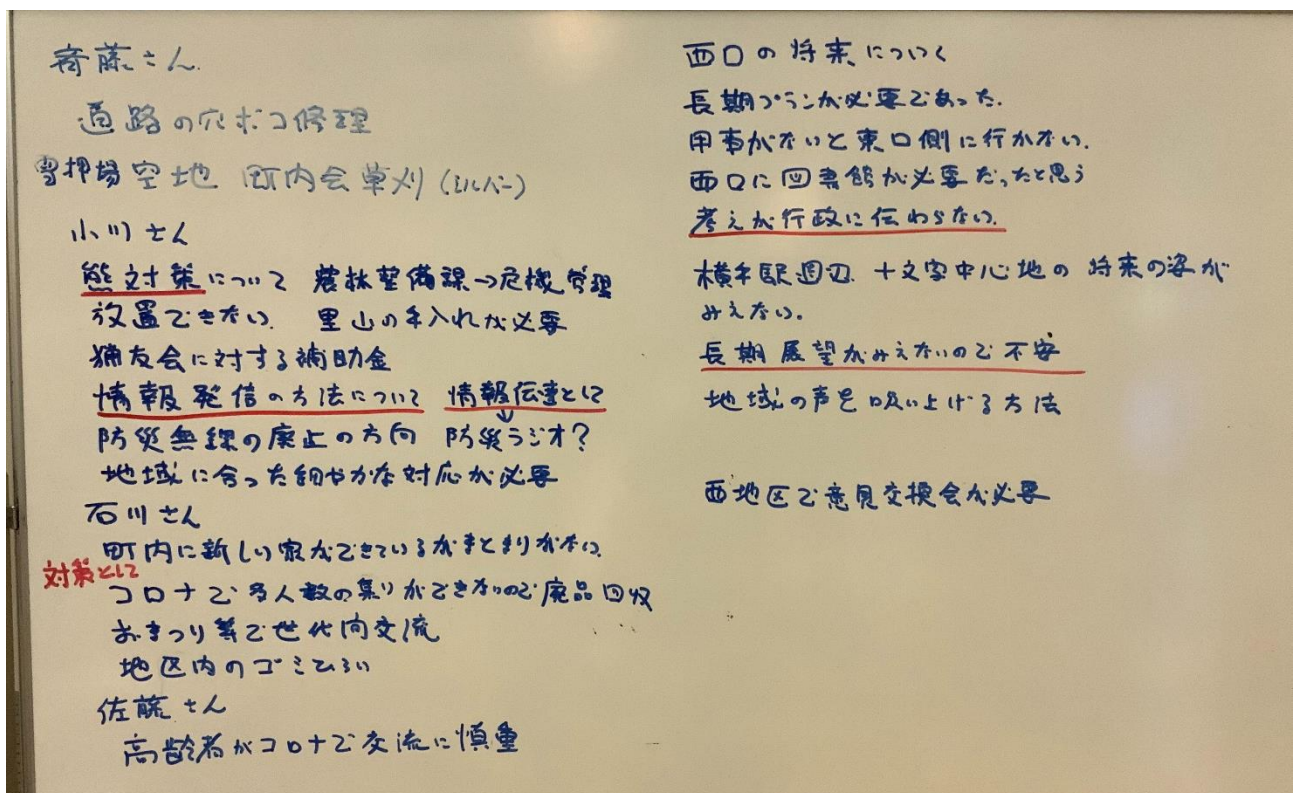 斉藤さん
道路の穴ボコ修理
雪押場 空地 町内会草刈(シルバー)
小川さん
熊対策について 農林整備課→危機管理
放置できない 里山の手入れが必要
猟友会に対する補助金
情報発信の方法について 情報伝達として
↓
防災無線の廃止の方向 防災ラジオ?
地域に合った細やかな対応が必要
石川さん
町内に新しい家ができているがまとまりがない
対策として
コロナで多人数の集りができないので廃品回収
おまつり等で世代間交流
地区内のゴミひろい
佐藤さん
高齢者がコロナで交流に慎重
西口の将来について
長期プランが必要であった.
用事がないと東口側に行かない.
西口に図書館が必要だったと思う
考えが行政に伝わらない.
横手駅週辺 十文字中心地の将来の姿が
みえない。
長期展望がみえないので不安
地域の声を吸い上げる方法
西地区で意見交換会が必要